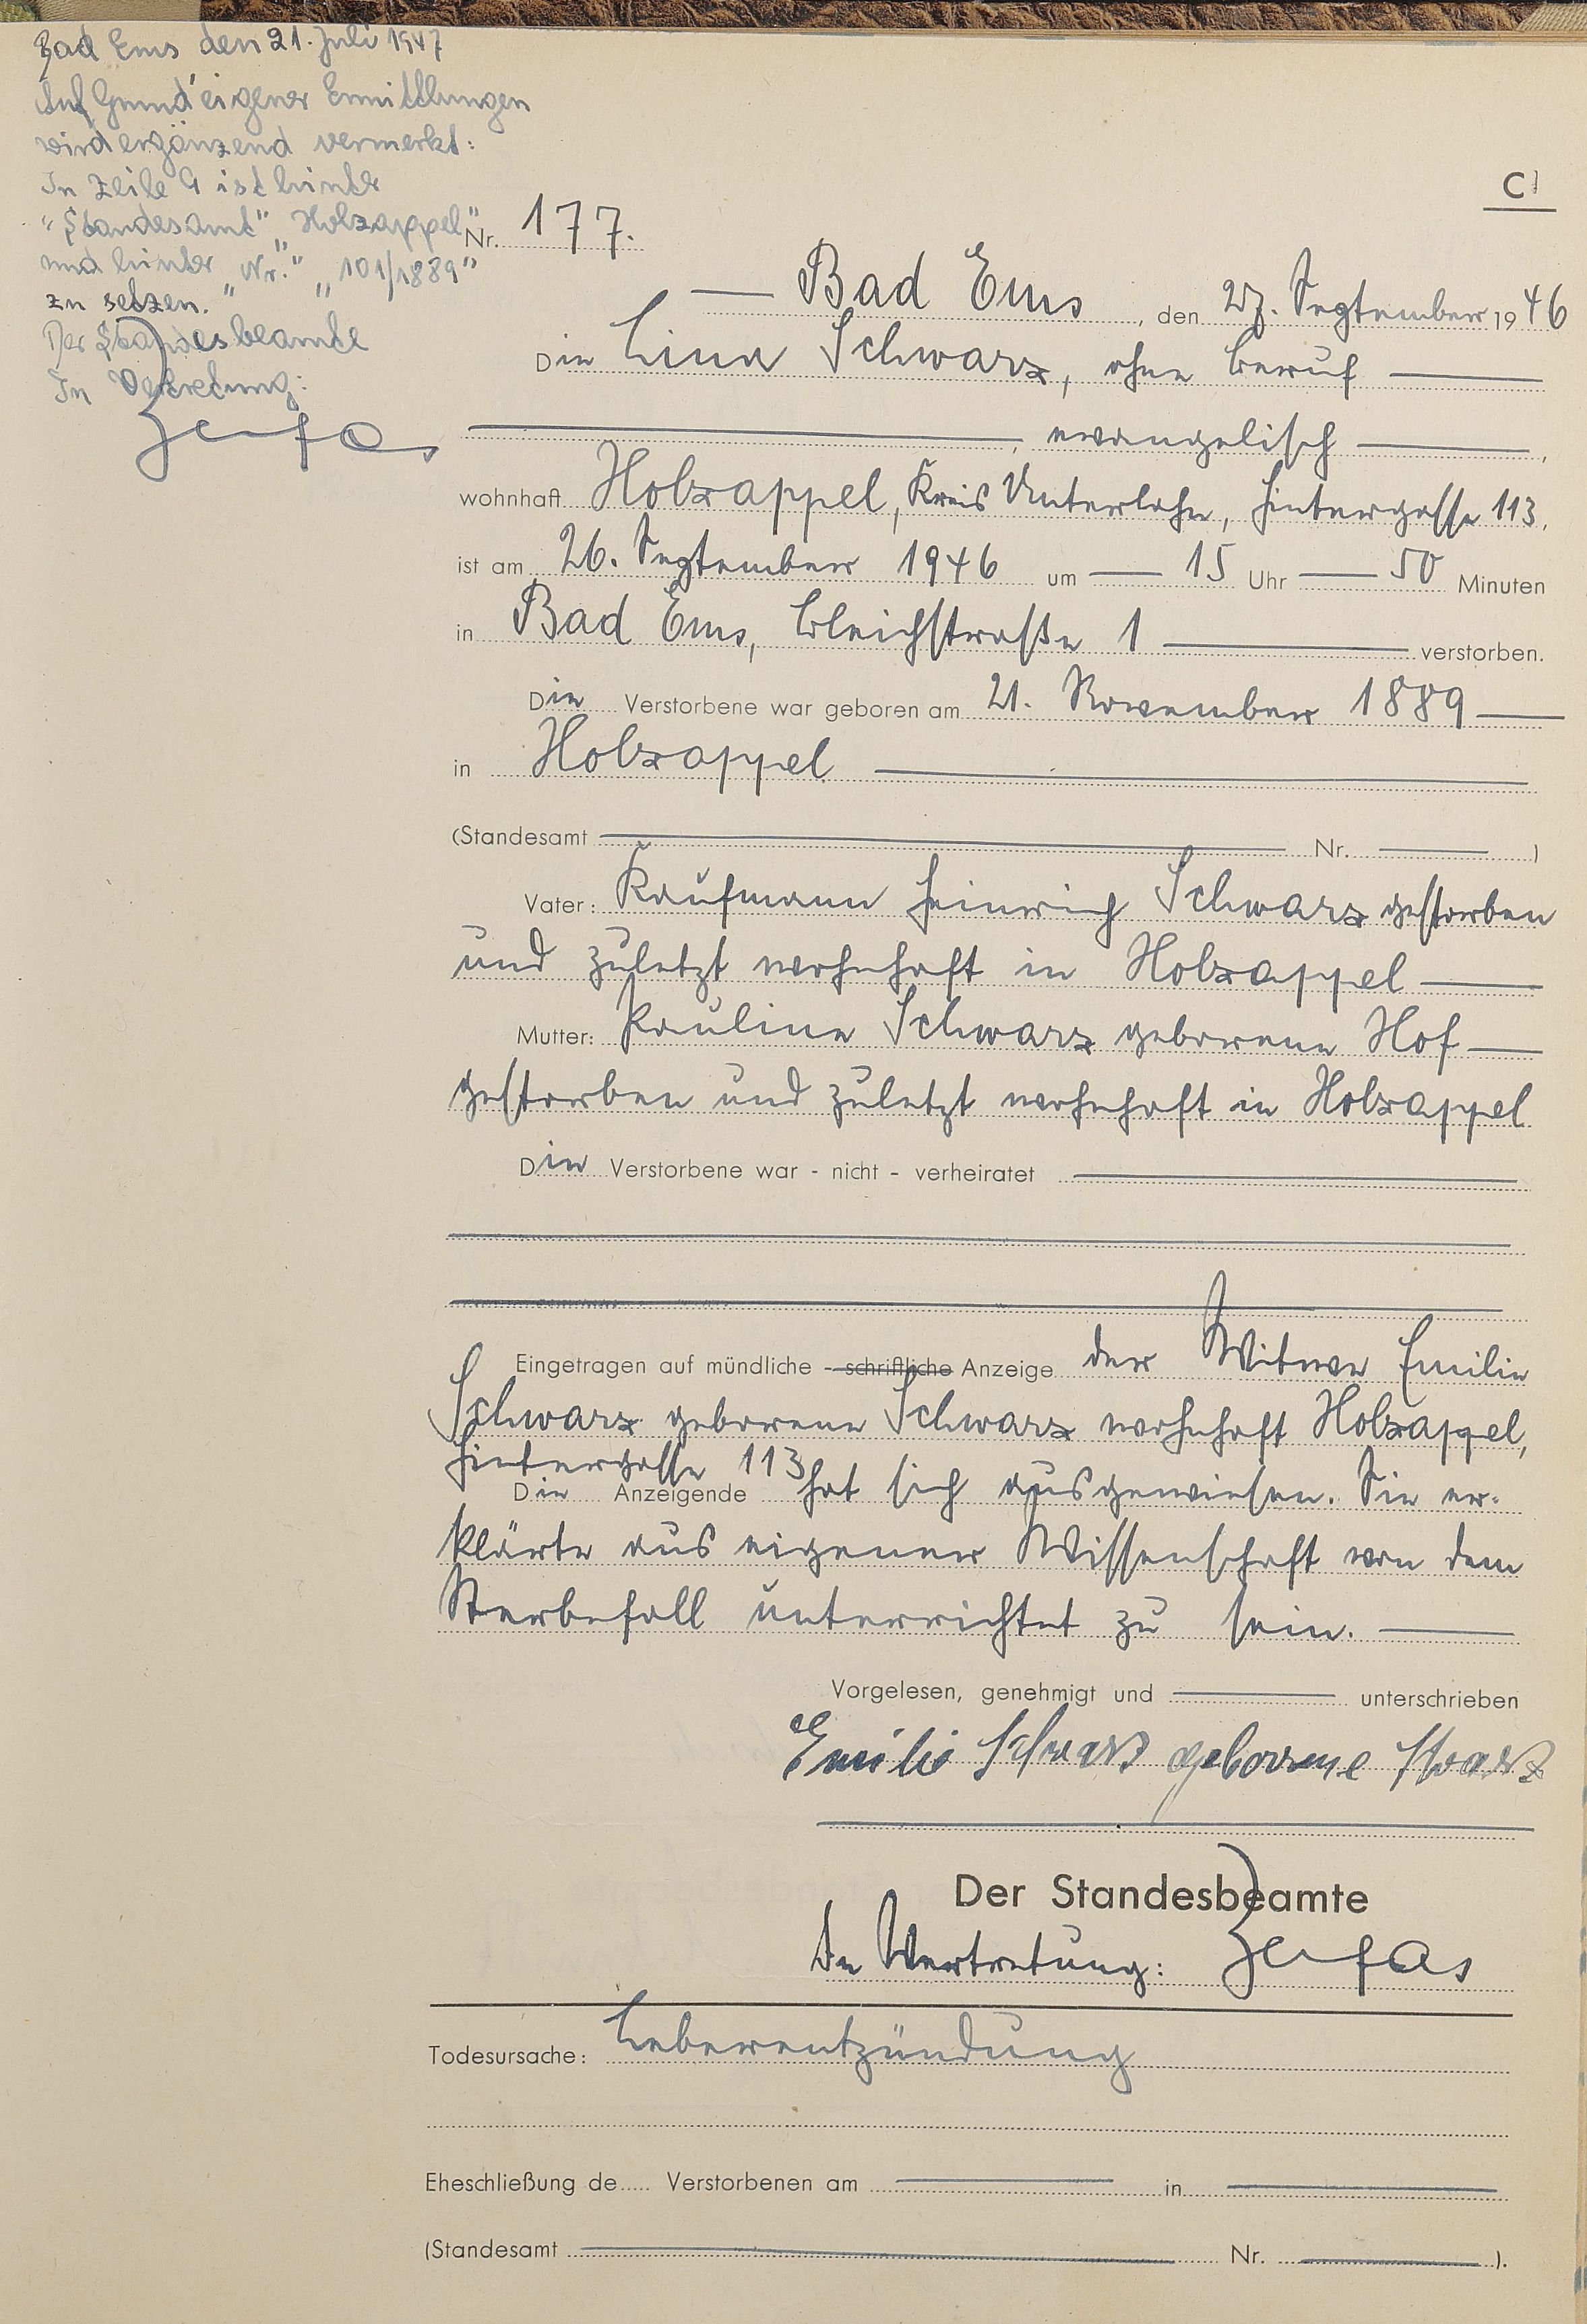 Bad Ems den 21. Juli 1947
Auf Grund eigener Ermittlungen
wird ergänzend vermerkt:
In Zeile 9 ist hinter
"Standesamt" "Holzappel"
und hinter "Nr." "101/1889"
zu setzen.
Der Standesbeamte
In Vertretung:
Zerfas
C
Nr. 177.
Bad Ems, den 27. September 1946
Die Lina Schwarz, ohne Beruf
, evangelisch,
wohnhaft Holzappel, Kreis Unterlahn, Hintergasse 113,
ist am 26. September 1946 um 15 Uhr 50 Minuten
in Bad Ems, Bleichstraße 1 verstorben.
Die Verstorbene war geboren am 21. November 1889
in Holzappel
(Standesamt Nr. )
Vater: Kaufmann Heinrich Schwarz gestorben
und zuletzt wohnhaft in Holzappel
Mutter: Pauline Schwarz geborene Hof
gestorben und zuletzt wohnhaft in Holzappel
Die Verstorbene war - nicht - verheiratet
Eingetragen auf mündliche - schriftliche Anzeige der Witwe Emilie
Schwarz geborene Schwarz wohnhaft Holzappel,
Hintergasse 113
Die Anzeigende hat sich ausgewiesen. Sie er-
klärte aus eigener Wissenschaft von dem
Sterbefall unterrichtet zu sein.
Vorgelesen, genehmigt und unterschrieben
Emilie Schwarz geborene Schwarz
Der Standesbeamte
In Vertretung: Zerfas
Todesursache: Leberentzündung
Eheschließung de..... Verstorbenen am in
(Standesamt Nr. ).